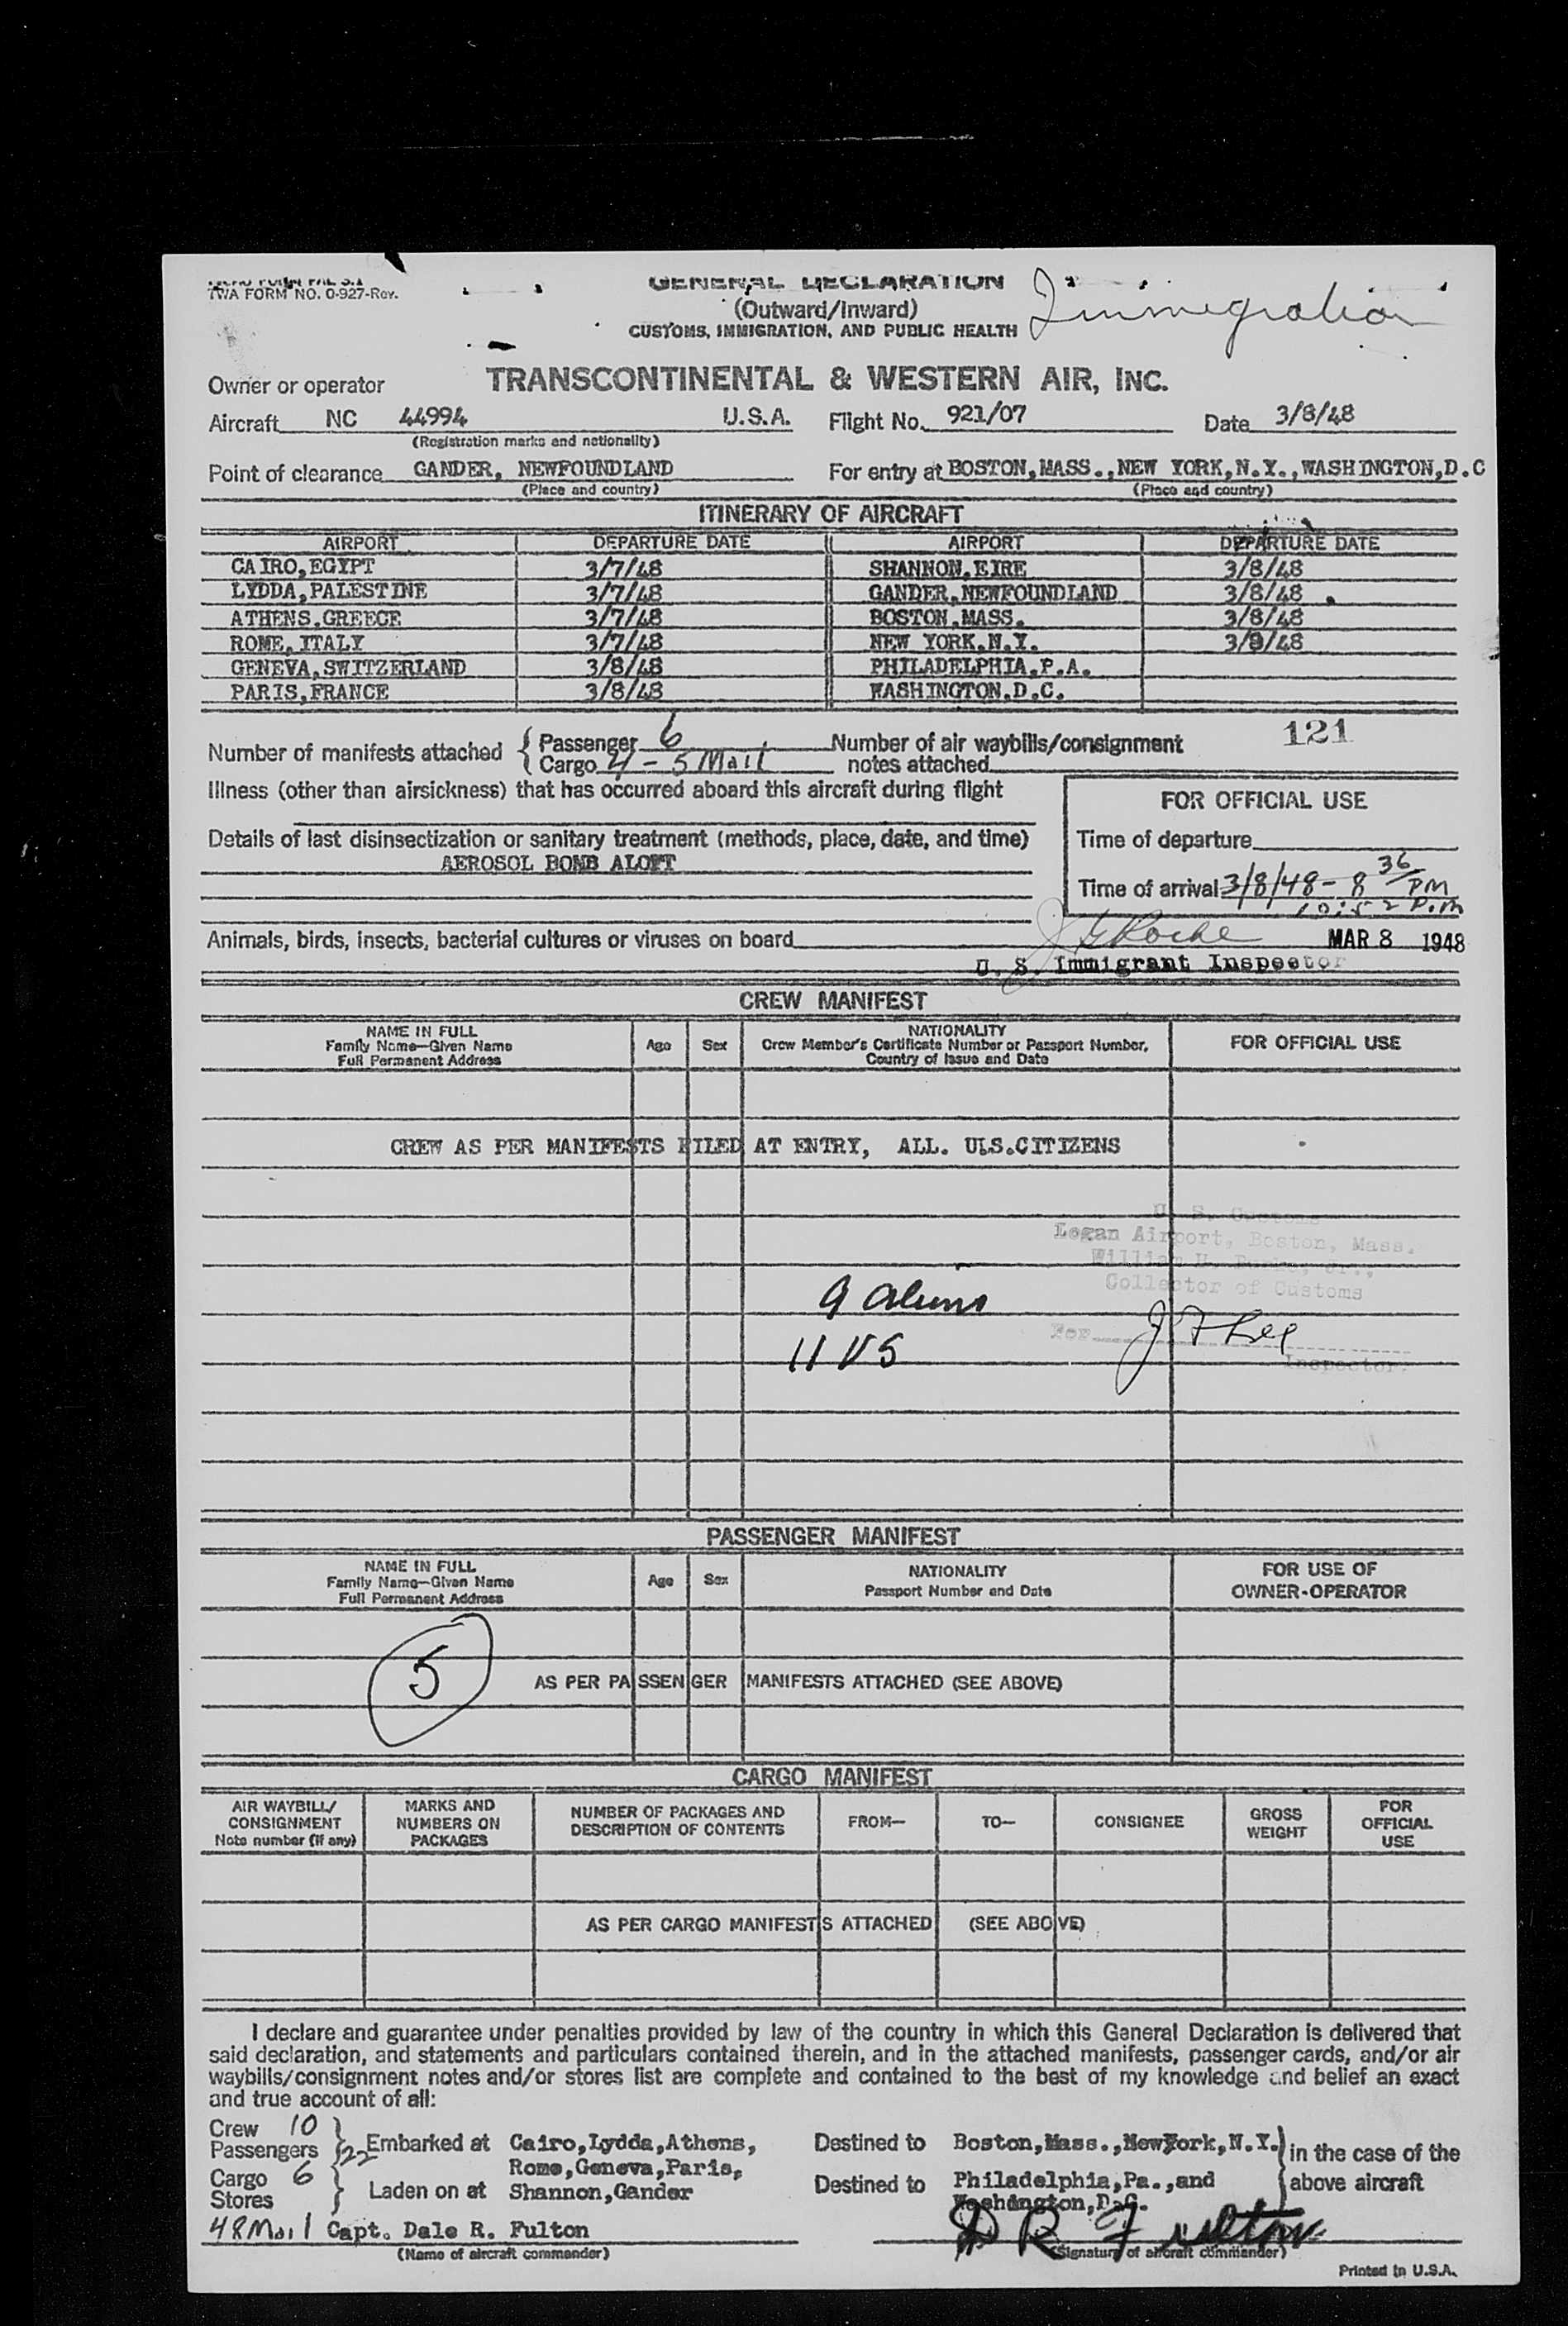 TWA FORM NO. O-927-Rev.
GENERAL DECLARATION
(Outward/Inward)
CUSTOMS, IMMIGRATION, AND PUBLIC HEALTH
Immigration
Owner or operator TRANSCONTINENTAL & WESTERN AIR, INC.
Aircraft NC 44994 U.S.A. Flight No. 921/07 Date 3/8/48
(Registration marks and nationality)
Point of clearance GANDER, NEWFOUNDLAND For entry at BOSTON,MASS.,NEW YORK,N.Y.,WASHINGTON,D.C
(Place and country) (Place and country)
ITINERARY OF AIRCRAFT
AIRPORT DEPARTURE DATE AIRPORT DEPARTURE DATE
CAIRO,EGYPT 3/7/48 SHANNON.EIRE 3/8/48
LYDDA,PALESTINE 3/7/48 GANDER,NEWFOUNDLAND 3/8/48
ATHENS.GREECE 3/7/48 BOSTON,MASS. 3/8/48
ROME,ITALY 3/7/48 NEW YORK.N.Y. 3/8/48
GENEVA,SWITZERLAND 3/8/48 PHILADELPHIA.P.A.
PARIS,FRANCE 3/8/48 WASHINGTON.D.C.
121
Number of manifests attached { Passenger 6 Number of air waybills/consignment
Cargo 4 - 5 Mail notes attached
Illness (other than airsickness) that has occurred aboard this aircraft during flight
FOR OFFICIAL USE
Details of last disinsectization or sanitary treatment (methods, place, date, and time) Time of departure
AEROSOL BOMB ALOFT
Time of arrival 3/8/48 - 8 36/PM
10:52 P.M
Animals, birds, insects, bacterial cultures or viruses on board J G Roche MAR 8 1948
U. S. Immigrant Inspector
CREW MANIFEST
NAME IN FULL
Family Name—Given Name
Full Permanent Address
Age Sex
NATIONALITY
Crew Member's Certificate Number or Passport Number,
Country of Issue and Date
FOR OFFICIAL USE
CREW AS PER MANIFESTS FILED AT ENTRY, ALL. U.S.CITIZENS
U. S. Customs
Logan Airport, Boston, Mass.
William H. Burke, Jr.,
Collector of Customs
9 aliens
For J F Lee
11 US
Inspector.
PASSENGER MANIFEST
NAME IN FULL
Family Name—Given Name
Full Permanent Address
Age Sex
NATIONALITY
Passport Number and Date
FOR USE OF
OWNER-OPERATOR
5
AS PER PASSENGER MANIFESTS ATTACHED (SEE ABOVE)
CARGO MANIFEST
AIR WAYBILL/
CONSIGNMENT
Note number (if any)
MARKS AND
NUMBERS ON
PACKAGES
NUMBER OF PACKAGES AND
DESCRIPTION OF CONTENTS
FROM— TO— CONSIGNEE
GROSS
WEIGHT
FOR
OFFICIAL
USE
AS PER CARGO MANIFESTS ATTACHED (SEE ABOVE)
I declare and guarantee under penalties provided by law of the country in which this General Declaration is delivered that
said declaration, and statements and particulars contained therein, and in the attached manifests, passenger cards, and/or air
waybills/consignment notes and/or stores list are complete and contained to the best of my knowledge and belief an exact
and true account of all:
Crew 10
Passengers 22 Embarked at Cairo,Lydda,Athens, Destined to Boston,Mass.,NewYork,N.Y. in the case of the
Cargo 6 Rome,Geneva,Paris, Destined to Philadelphia,Pa.,and above aircraft
Stores Laden on at Shannon,Gander Washington,D.C.
48 Mail Capt. Dale R. Fulton D R Fulton
(Name of aircraft commander) (Signature of aircraft commander)
Printed in U.S.A.